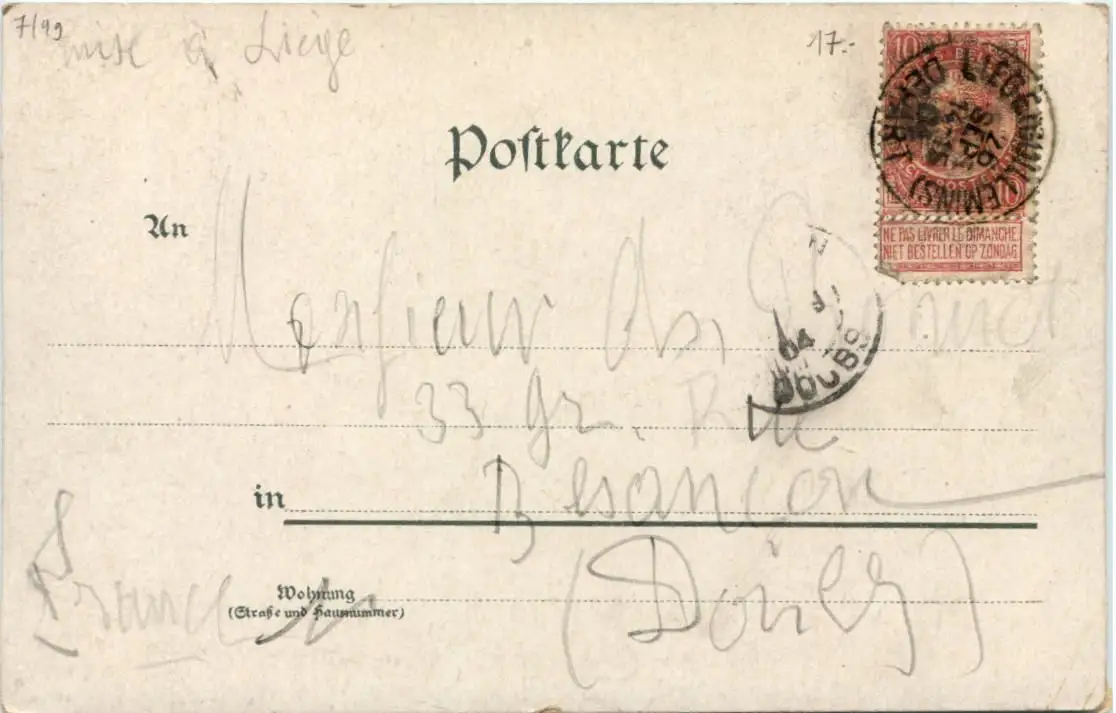 7/99
mise à Liège
17.-
10 10
LIÉGE (GUILLEMINS)
DEPART
NE PAS LIVRER LE DIMANCHE.
NIET BESTELLEN OP ZONDAG
Postkarte
An
Monsieur Ch.
04
DOUBS
33 Gr. Rue
in Besançon
(Doubs)
France
Wohnung
(Straße und Hausnummer)